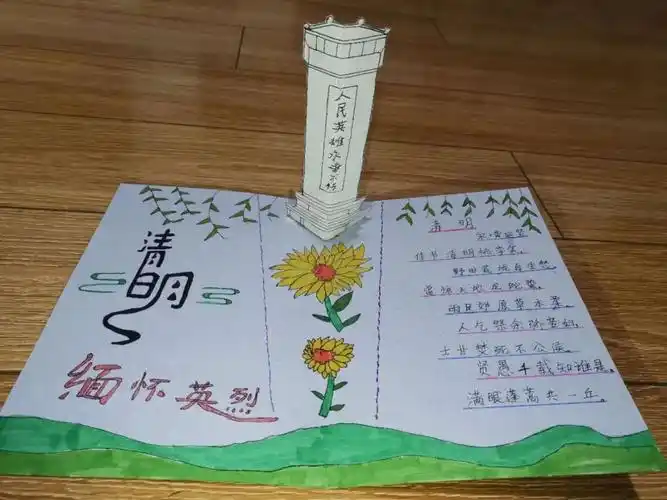 人民英雄永垂不朽
清明
缅怀英烈
清明
宋
佳节清明桃李笑,
野田荒 自生愁。
天地龙蛇蛰,
雨足郊原草木柔。
人乞祭余骄妾妇,
士甘焚死不公侯。
贤愚千载知谁是,
满眼蓬蒿共一丘。